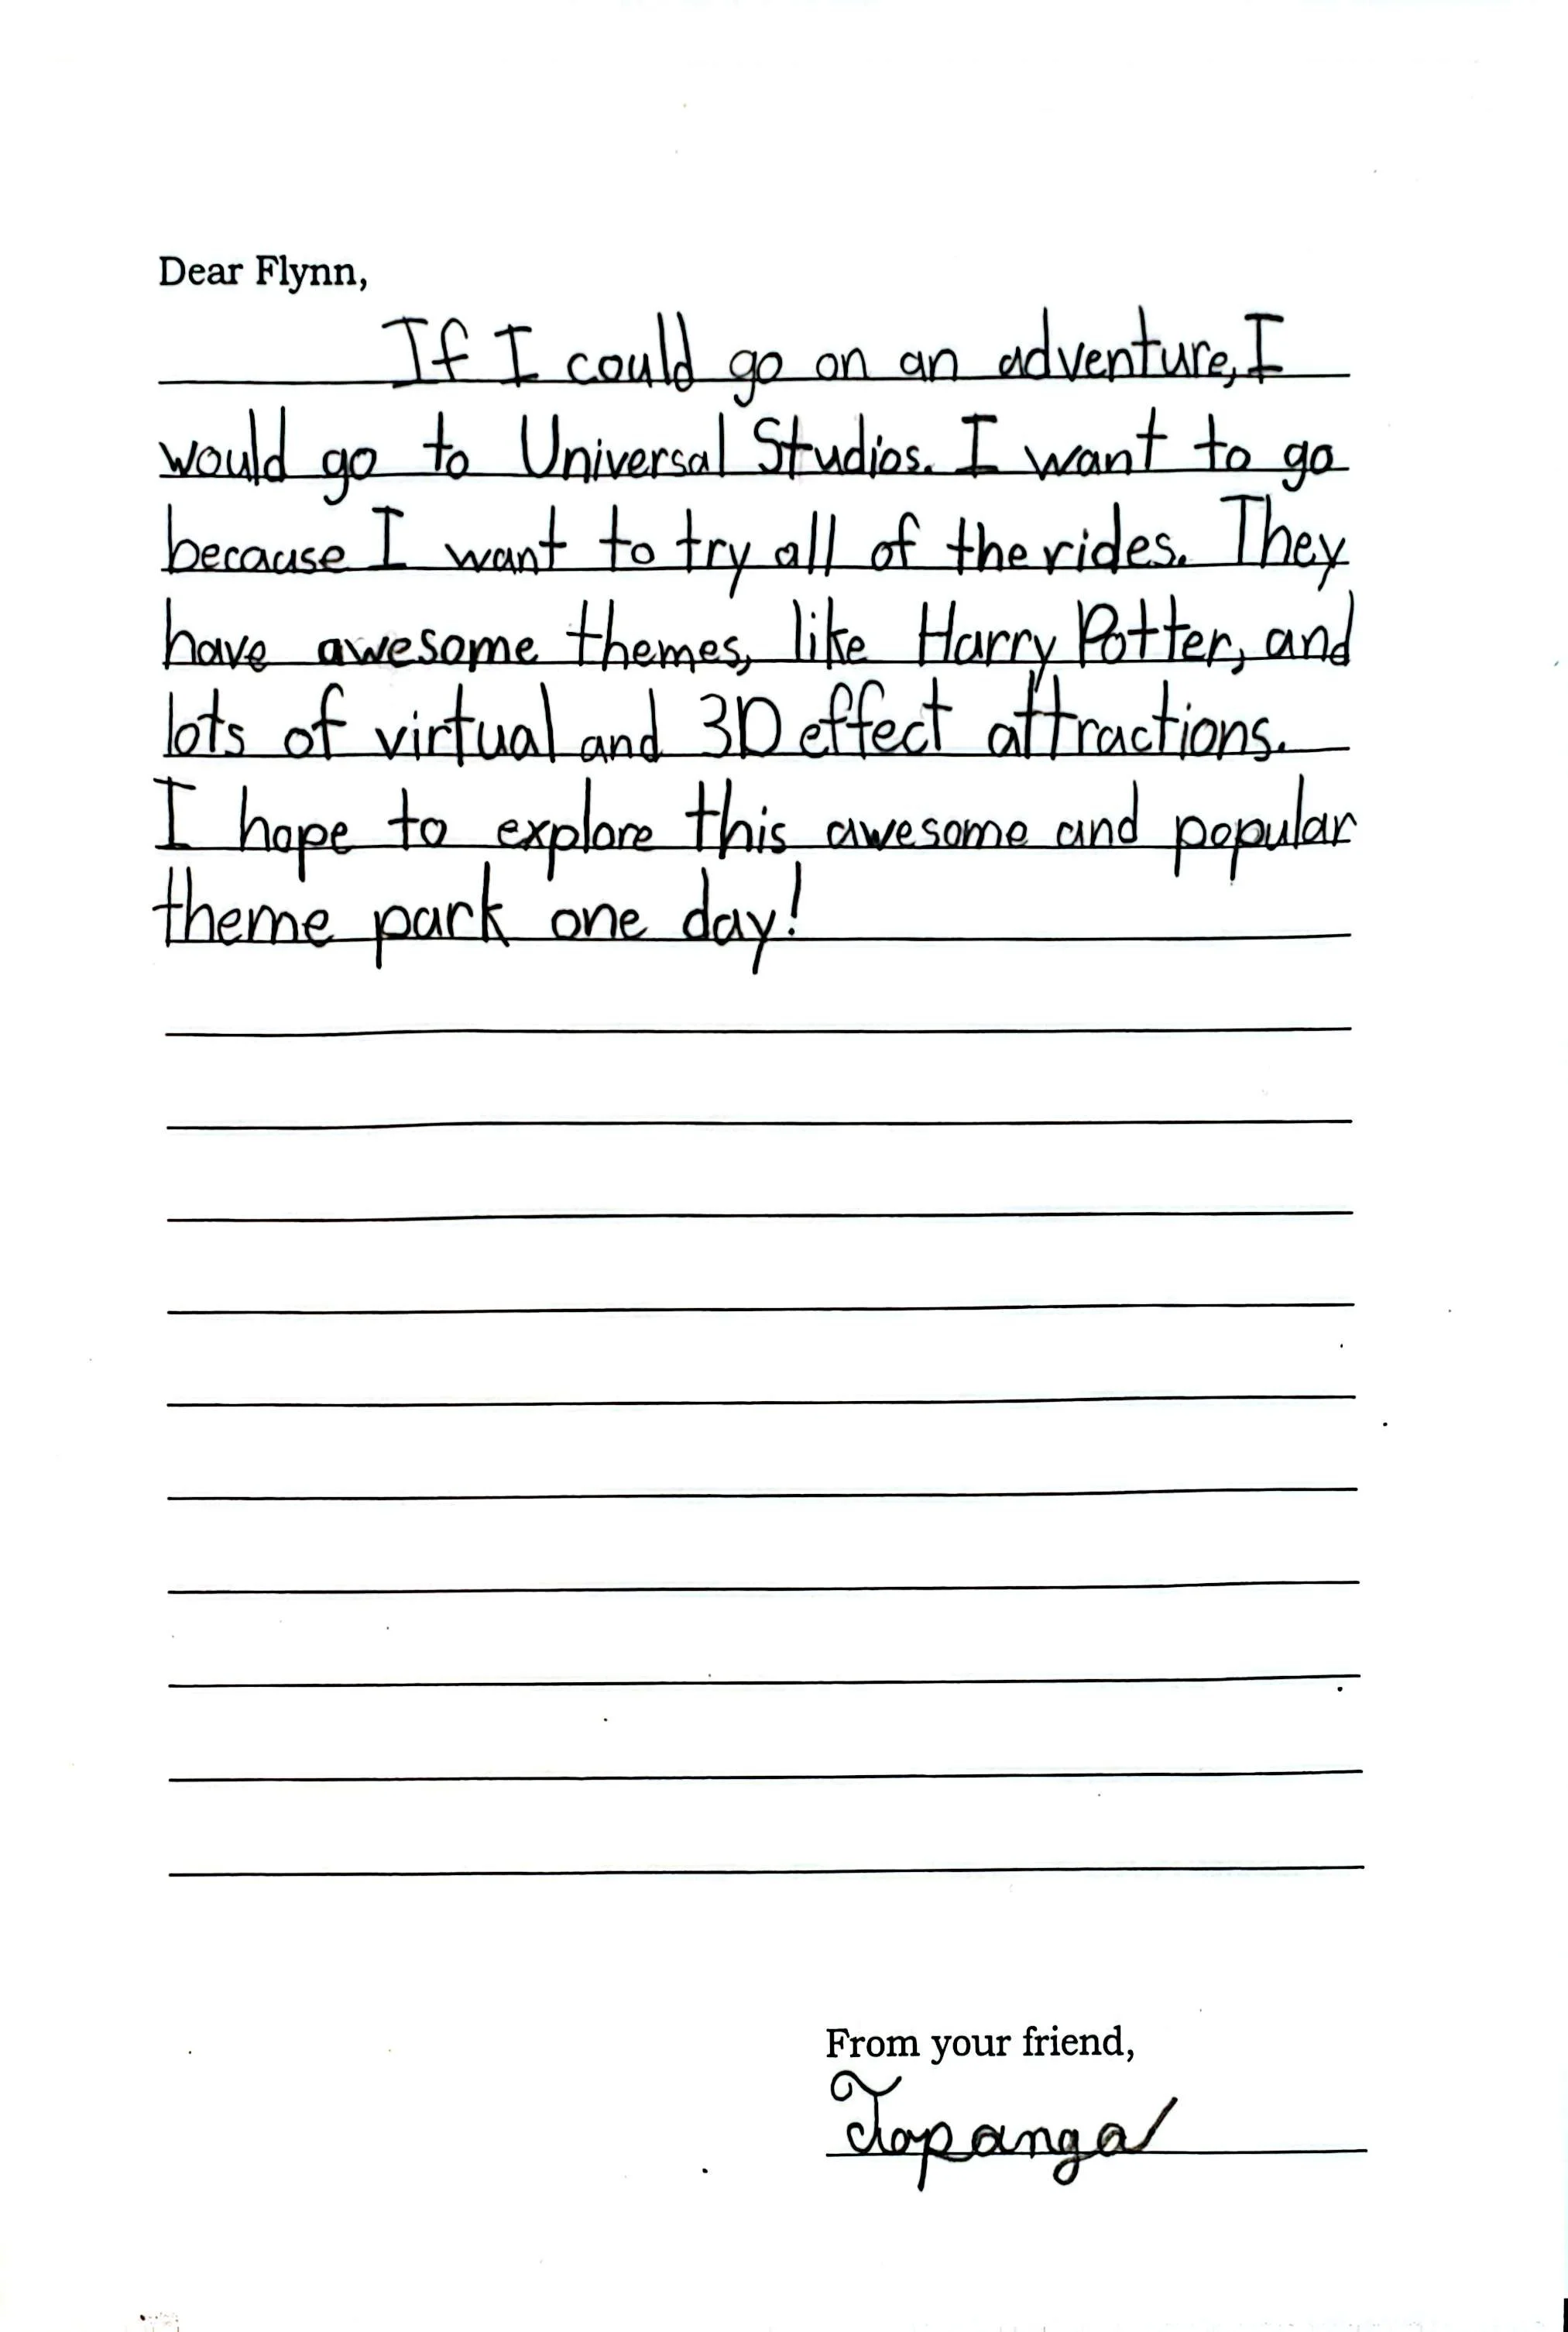 Dear Flynn,
If I could go on an adventure, I
would go to Universal Studios. I want to go
because I want to try all of the rides. They
have awesome themes, like Harry Potter, and
lots of virtual and 3D effect attractions.
I hope to explore this awesome and popular
theme park one day!
From your friend,
Topanga